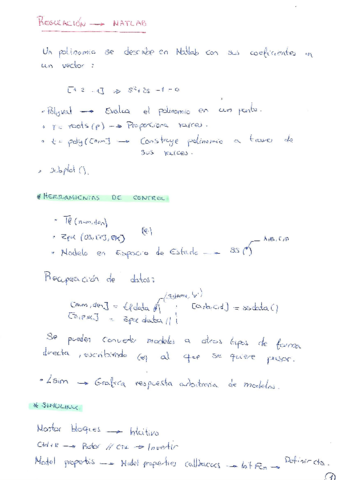 REGULACIÓN → MATLAB
Un polinomio se describe en Matlab con sus coeficientes en
un vector:
[1 2 -1] ⇒ s²+2s-1=0
• Polyval → Evalua el polinomio en un punto.
• r = roots(p) → Proporciona raices.
• t = poly([]) → Construye polinomio a traves de
sus raices.
• subplot().
* HERRAMIENTAS DE CONTROL:
• Tf (num,den)
• Zpk
• Modelo en Espacio de Estado → SS A,B,C,D
Recuperación de datos:
= tfdata [a,b,c,d] = ssdata()
= zpkdata
Se pueden convertir modelos a otros tipos de forma
directa, escribiendo al que se quiere pasar.
• Lsim → Grafica respuesta arbitraria de modelos.
* SIMULINK
Mostar bloques → Intuitivo
Ctrl+R → Rotar // → Invertir
Model properties → Model properties callbacks → Init Fcn → Definir